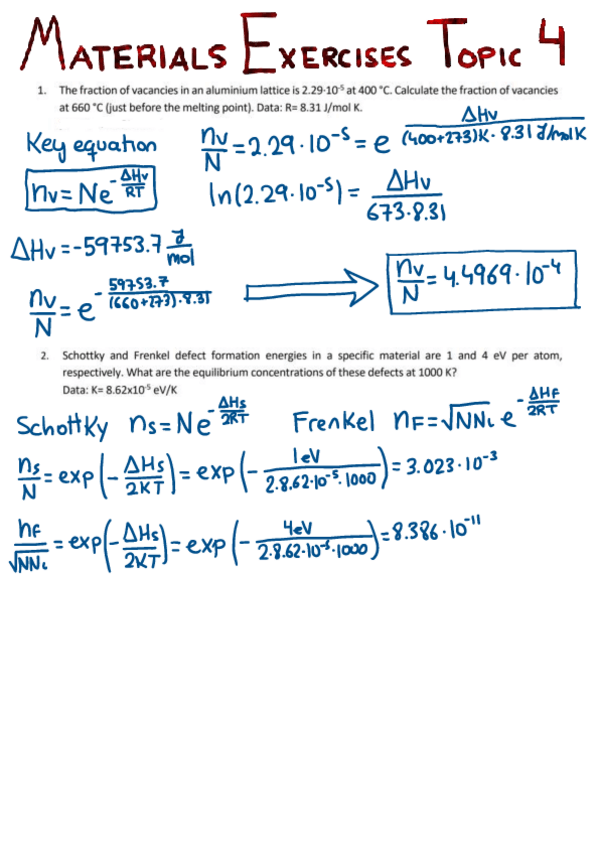 MATERIALS EXERCISES TOPIC 4
1. The fraction of vacancies in an aluminium lattice is 2.29·10⁻⁵ at 400 °C. Calculate the fraction of vacancies
at 660 °C (just before the melting point). Data: R= 8.31 J/mol K.
Key equation
nv = Ne^(-ΔHv/RT)
nv/N = 2.29·10⁻⁵ = e^(ΔHv/((400+273)K·8.31 J/molK))
ln(2.29·10⁻⁵) = ΔHv/(673·8.31)
ΔHv = -59753.7 J/mol
nv/N = e^(-59753.7/((660+273)·8.31))
nv/N = 4.4969·10⁻⁴
2. Schottky and Frenkel defect formation energies in a specific material are 1 and 4 eV per atom,
respectively. What are the equilibrium concentrations of these defects at 1000 K?
Data: K= 8.62x10⁻⁵ eV/K
Schottky ns = Ne^(-ΔHs/2RT) Frenkel nF = √NNi e^(-ΔHF/2RT)
ns/N = exp(-ΔHs/2KT) = exp(-1eV/(2·8.62·10⁻⁵·1000)) = 3.023·10⁻³
nF/√NNi = exp(-ΔHs/2KT) = exp(-4eV/(2·8.62·10⁻⁵·1000)) = 8.386·10⁻¹¹